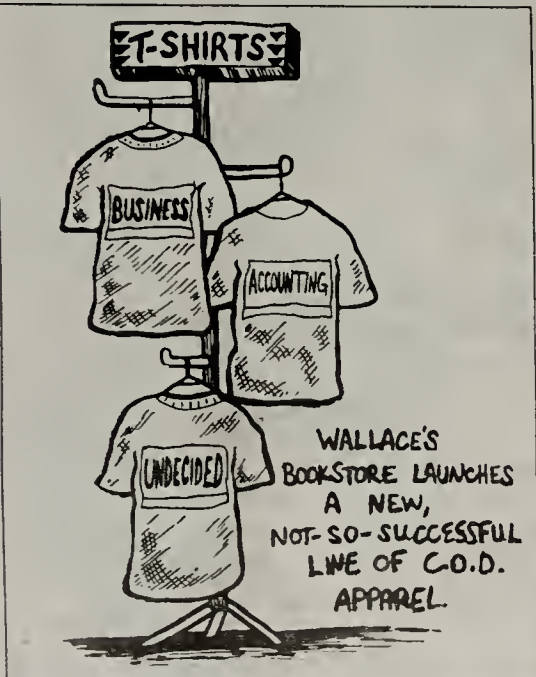 T-SHIRTS
BUSINESS
ACCOUNTING
UNDECIDED
WALLACE'S
BOOKSTORE LAUNCHES
A NEW,
NOT-SO-SUCCESSFUL
LINE OF C.O.D.
APPAREL.